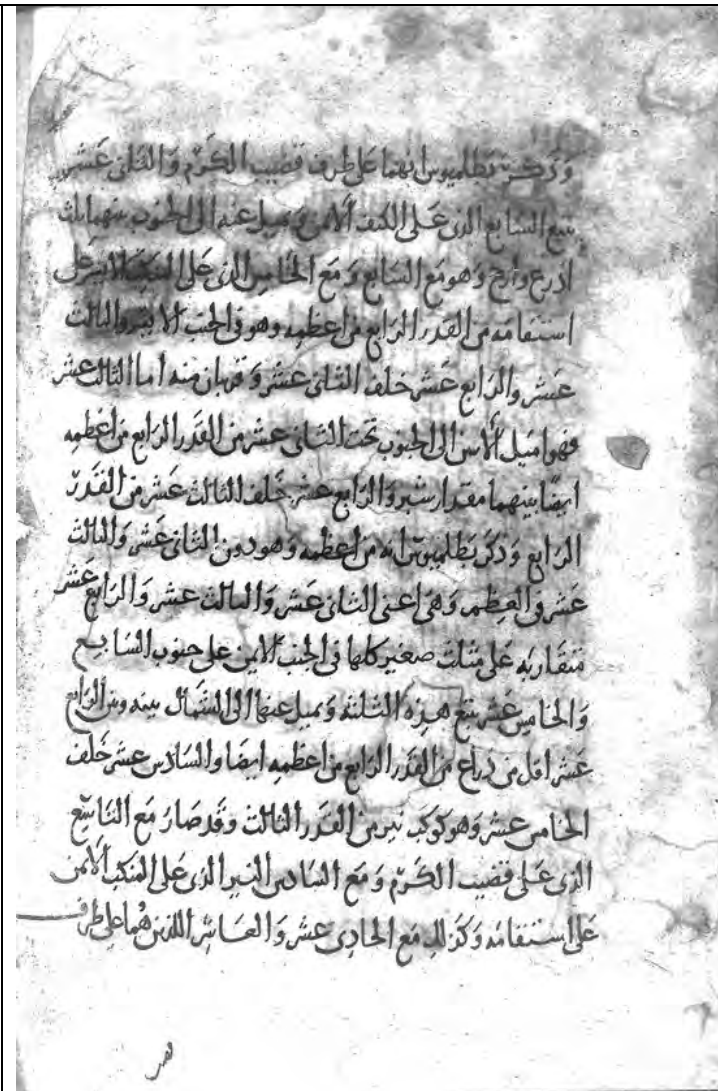 وذكر بطلميوس انهما على طرف قضيب الكرم والثانى عشر
يتبع السابع الذى على الكتف الايمن ويميل عنه الى الجنوب بينهما ثلث
اذرع وارجح وهو مع السابع ومع الخامس الذى على المنكب الايسر على
استقامه من القدر الرابع من اعظمه وهو فى الجنب الايمن والثالث
عشر والرابع عشر خلف الثانى عشر وقريبان منه اما الثالث عشر
فهو اميل الاثنين الى الجنوب تحت الثانى عشر من القدر الرابع من اعظمه
ايضا بينهما مقدار شبر والرابع عشر خلف الثالث عشر من القدر
الرابع وذكر بطلميوس انه من اعظمه وهو دون الثانى عشر والثالث
عشر فى العظم وهى اعنى الثانى عشر والثالث عشر والرابع عشر
متقاربه على مثلث صغير كلها فى الجنب الايمن على جنوب السابع
والخامس عشر يتبع هذه الثلثه ويميل عنها الى الشمال بينه وبين الرابع
عشر اقل من ذراع من القدر الرابع من اعظمه ايضا والسادس عشر خلف
الخامس عشر وهو كوكب نير من القدر الثالث وقد صار مع التاسع
الذى على قضيب الكرم ومع السادس النير الذى على المنكب الايمن
على استقامه وكذلك مع الحادى عشر والعاشر اللذين هما على طرف